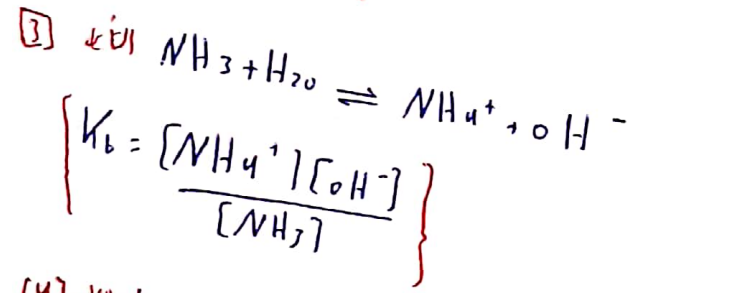 [3] NH3 + H2O ⇌ NH4+ + OH-
Kb = [NH4+][OH-]
[NH3]